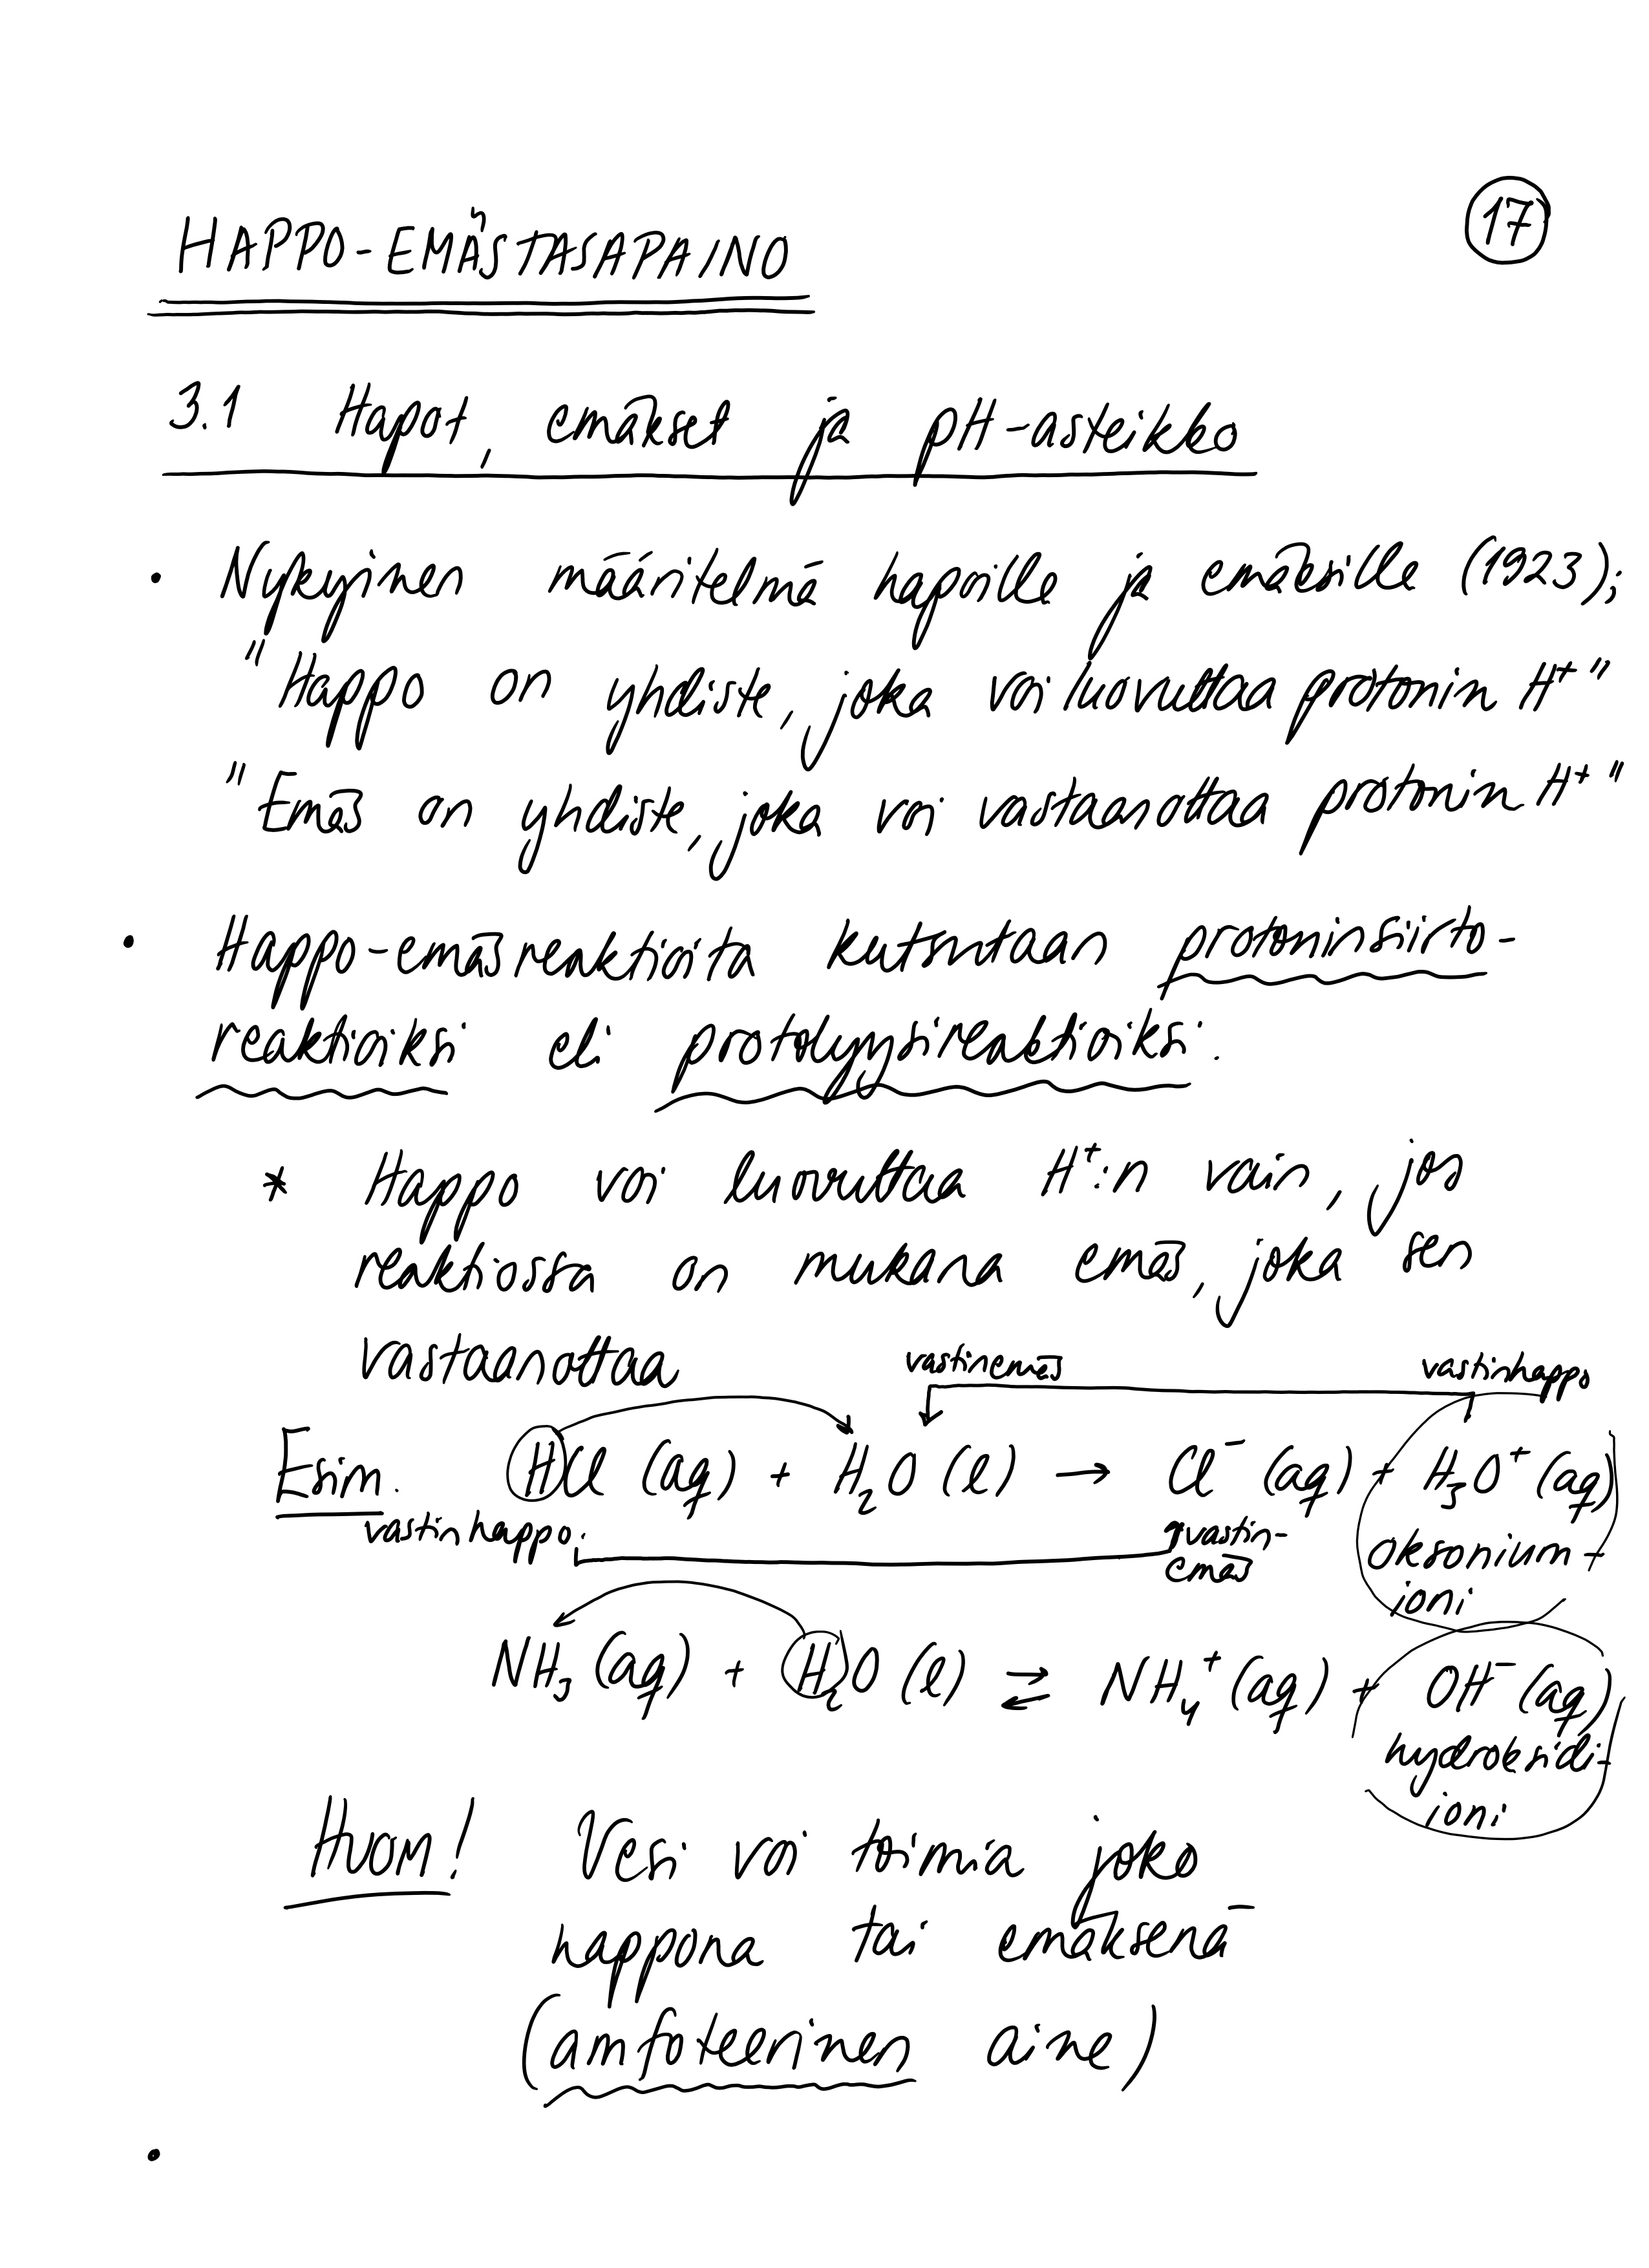 17
HAPPO-EMÄSTASAPAINO
3.1 Hapot, emäkset ja pH-asteikko
• Nykyinen määritelmä hapoille ja emäksille (1923);
"Happo on yhdiste, joka voi luovuttaa protonin H⁺"
"Emäs on yhdiste, joka voi vastaanottaa protonin H⁺"
• Happo-emäsreaktioita kutsutaan protoninsiirto-
reaktioiksi eli protolyysireaktioiksi.
* Happo voi luovuttaa H⁺:n vain, jos
reaktiossa on mukana emäs, joka sen
vastaanottaa
vastinemäs vastinhappo
Esim. HCl (aq) + H₂O (l) → Cl⁻ (aq) + H₃O⁺ (aq)
vastinhappo vastin-
emäs
oksonium-
ioni
NH₃ (aq) + H₂O (l) ⇄ NH₄⁺ (aq) + OH⁻ (aq)
hydroksidi-
ioni
Huom! Vesi voi toimia joko
happona tai emäksenä
(amfoteerinen aine)
•